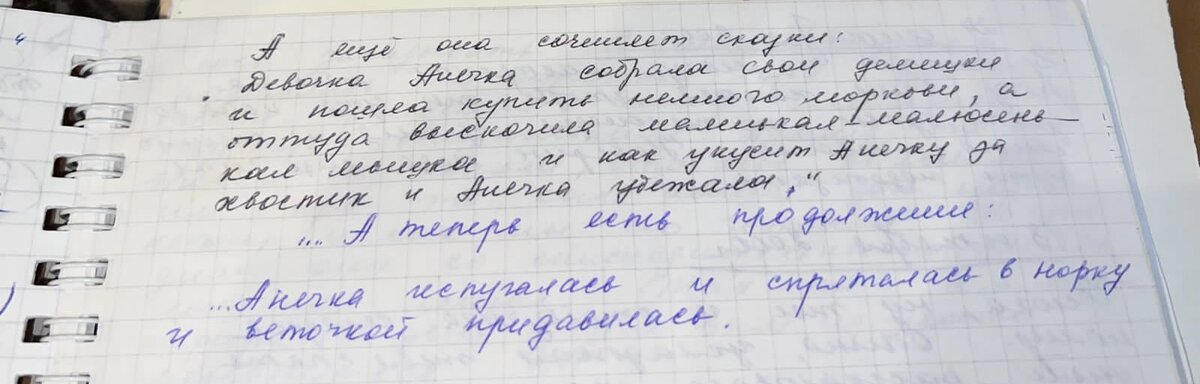 4
А ещё она сочиняет сказки:
„Девочка Анечка собрала свои делишки
и пошла купить немного моркови, а
оттуда выскочила малицькая-малюсень-
кая мышка и как укусит Анечку за
хвостик и Анечка убежала."
.... А теперь есть продолжение:
...Анечка испугалась и спряталась в норку
и веточкой придавилась.